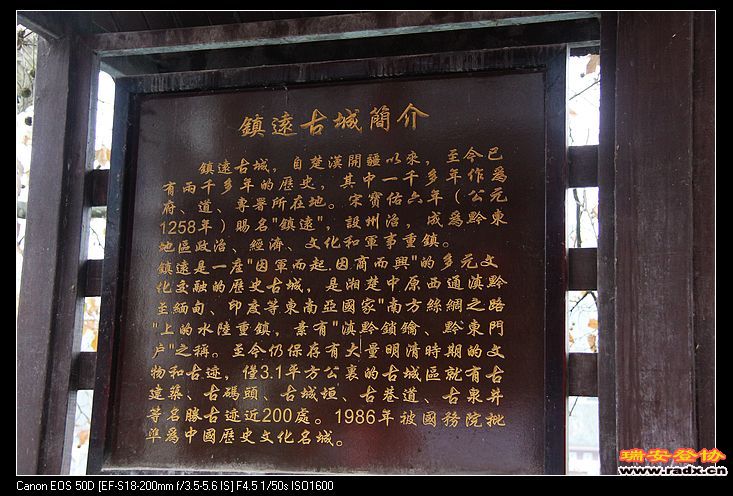 鎮遠古城簡介
鎮遠古城，自楚漢開疆以來，至今已
有兩千多年的歷史，其中一千多年作為
府、道、專署所在地。宋寶佑六年（公元
1258年）賜名"鎮遠"，設州治，成為黔東
地區政治、經濟、文化和軍事重鎮。
鎮遠是一座"因軍而起.因商而興"的多元文
化交融的歷史古城，是湘楚中原西通滇黔
至緬甸、印度等東南亞國家"南方絲綢之路
"上的水陸重鎮，素有"滇黔鎖鑰、黔東門
户"之稱。至今仍保存有大量明清時期的文
物和古迹，僅3.1平方公裏的古城區就有古
建築、古碼頭、古城垣、古巷道、古泉井
等名勝古迹近200處。1986年被國務院批
準為中國歷史文化名城。
瑞安登协
www.radx.cn
Canon EOS 50D [EF-S18-200mm f/3.5-5.6 IS] F4.5 1/50s ISO1600